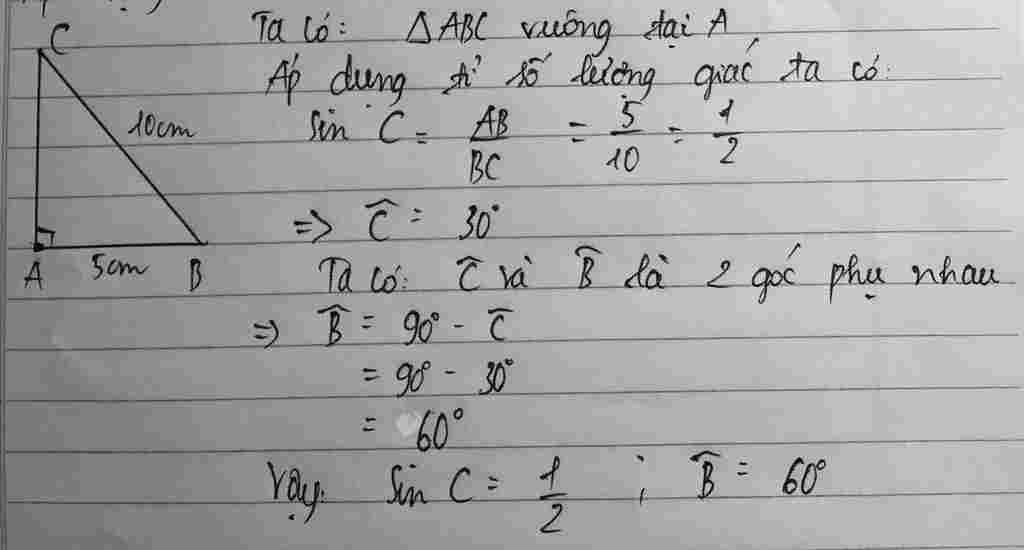 C
10cm
A 5cm B
Ta có: ΔABC vuông tại A
Áp dụng tỉ số lượng giác, ta có:
Sin C = AB/BC = 5/10 = 1/2
=> Ĉ = 30°
Ta có: Ĉ và B̂ là 2 góc phụ nhau
=> B̂ = 90° - Ĉ
= 90° - 30°
= 60°
Vậy: Sin C = 1/2 ; B̂ = 60°